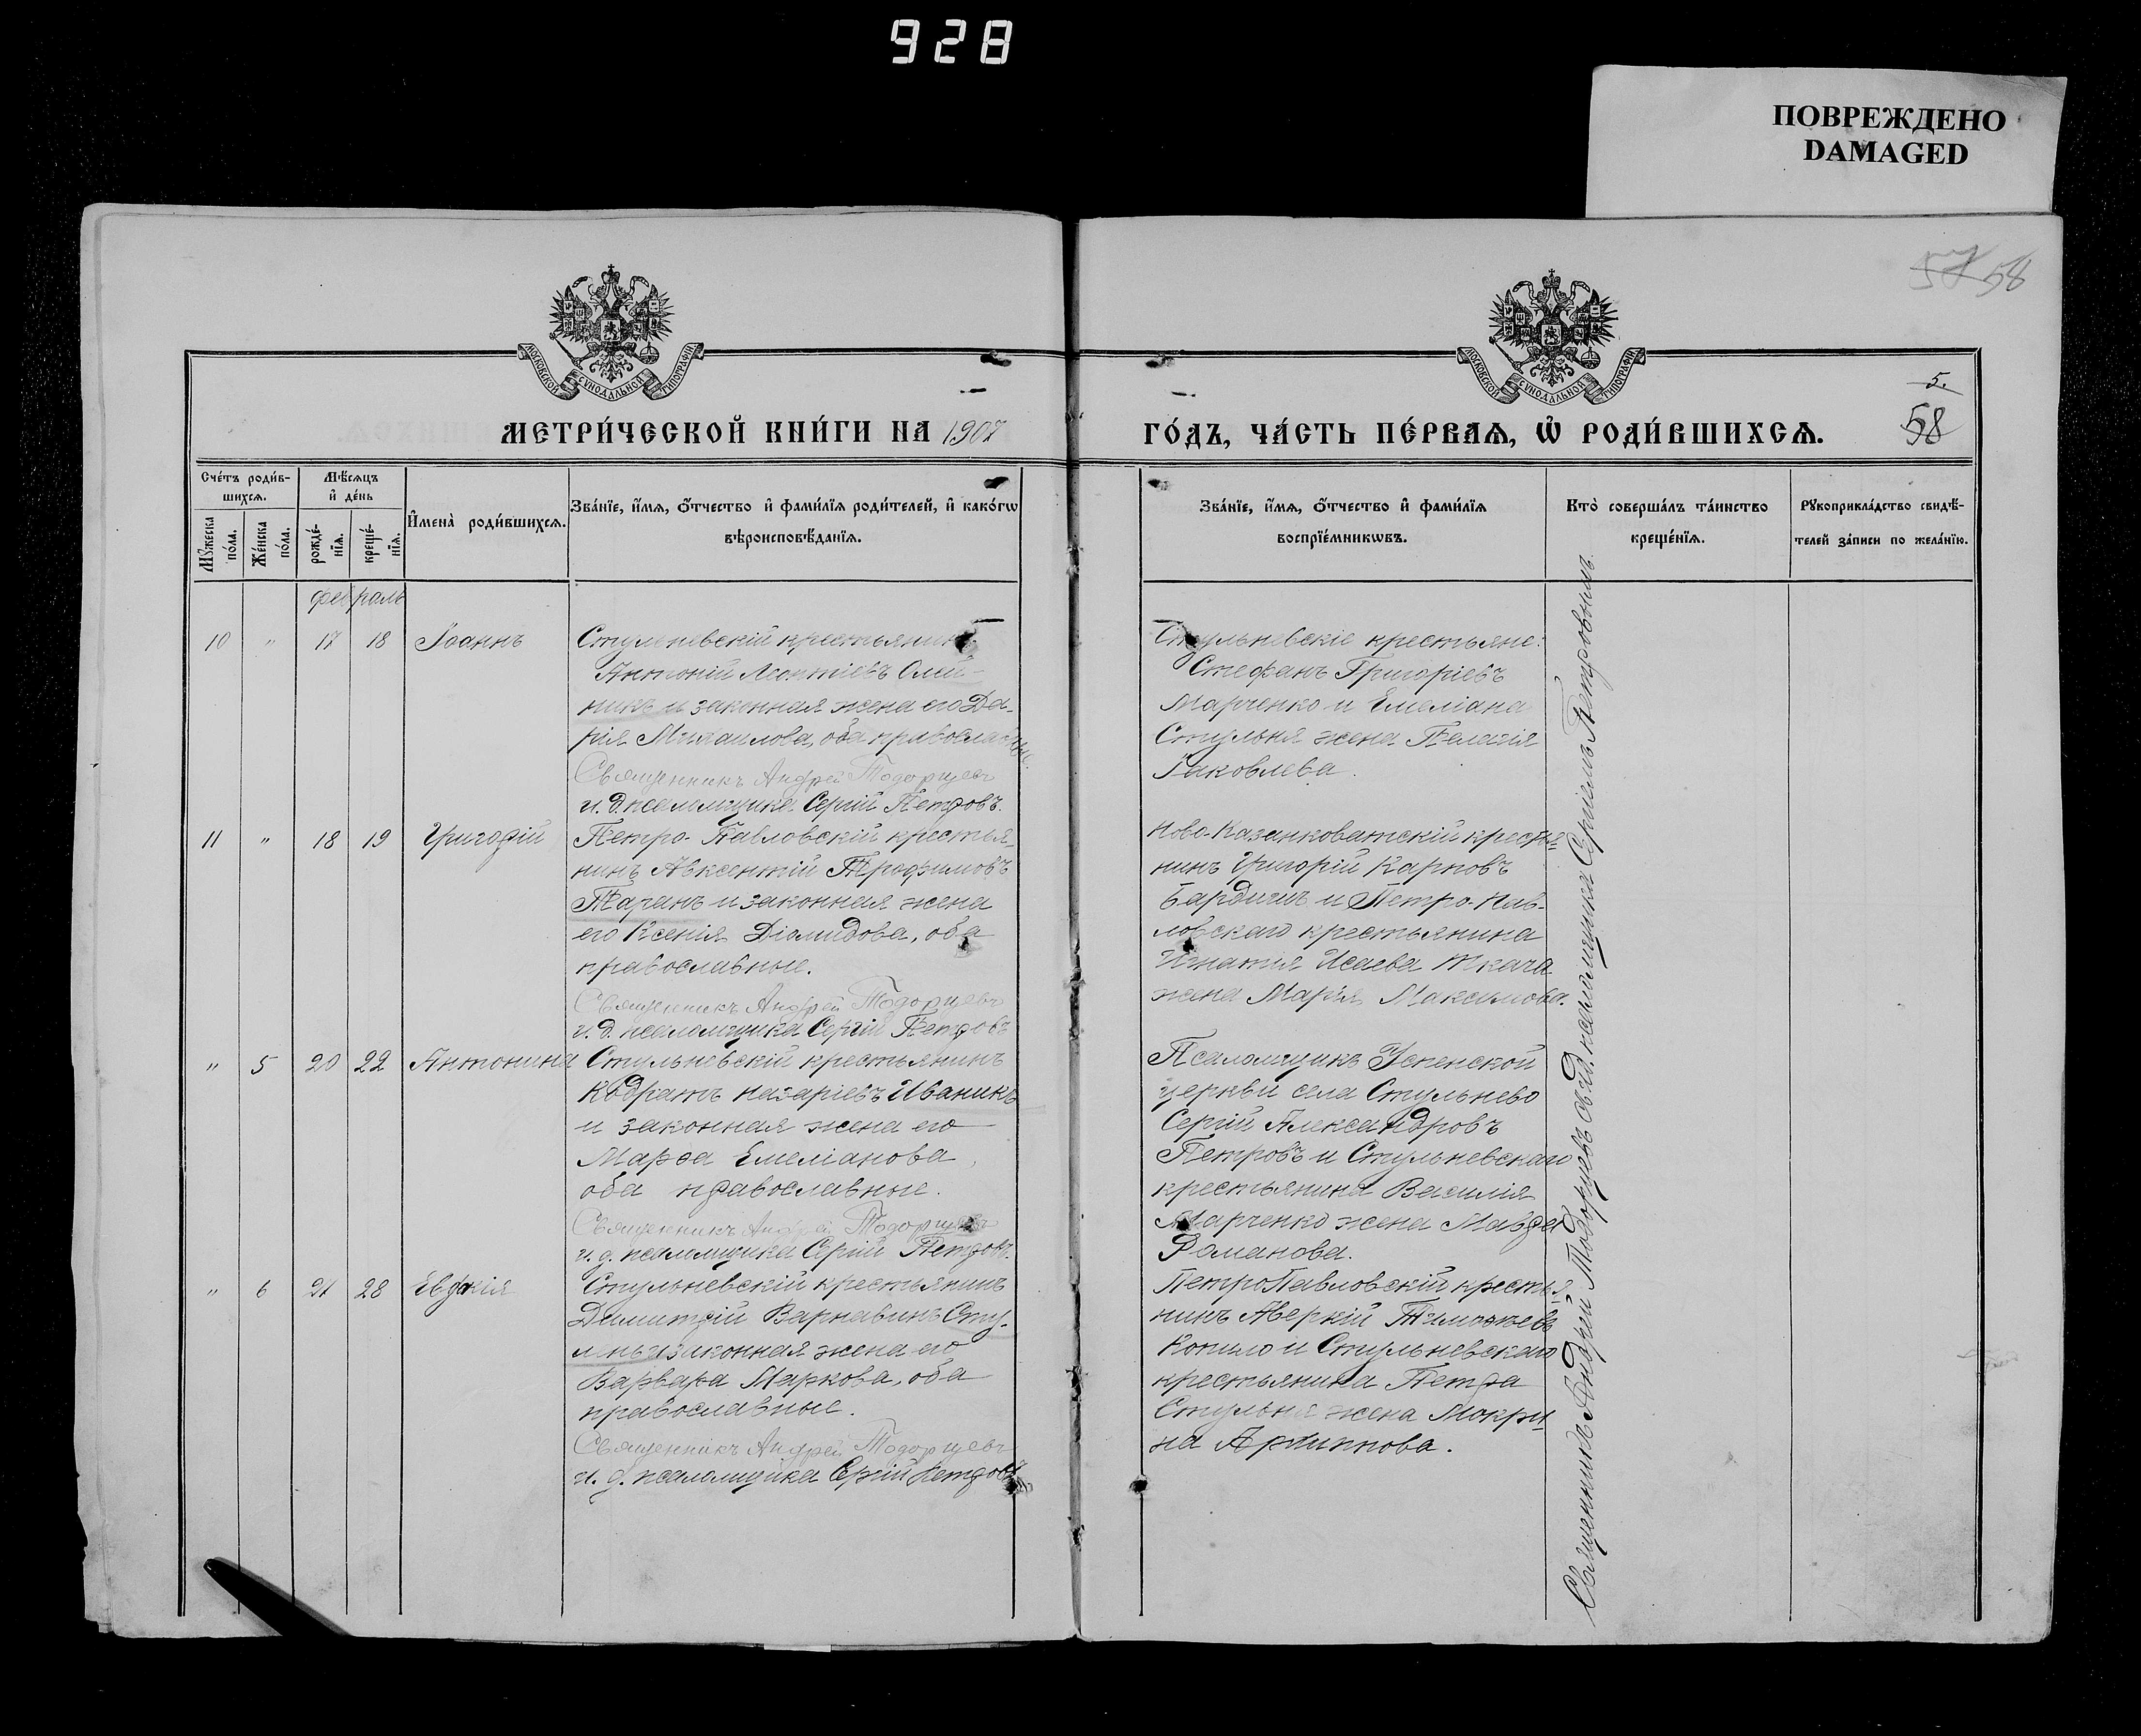 928
ПОВРЕЖДЕНО
DAMAGED
57 58
МОСКОВСКОЙ СѴНОДАЛЬНОЙ ТИПОГРАФІИ
МОСКОВСКОЙ СѴНОДАЛЬНОЙ ТИПОГРАФІИ
5.
58
МЕТРИ́ЧЕСКОЙ КНИ́ГИ НА 1907
ГО́ДЪ, ЧА́СТЬ ПЕ́РВАѦ, Ѡ҆ РОДИ́ВШИХСѦ.
Сче́тъ роди́в-
шихсѧ.
Мѹ́жеска
по́ла.
Же́нска
по́ла.
Мѣ́сѧцъ
и҆ де́нь
рожде́-
нїѧ.
креще́-
нїѧ.
И҆мена̀ роди́вшихсѧ.
Зва́нїе, и҆́мѧ, ѻ҆́тчество и҆ фами́лїѧ роди́телей, и҆ како́гѡ
вѣроисповѣ́данїѧ.
Зва́нїе, и҆́мѧ, ѻ҆́тчество и҆ фами́лїѧ
воспрїе́мникѡвъ.
Кто̀ соверша́лъ та́инство
креще́нїѧ.
Рѹкоприкла́дство свидѣ́-
телей за́писи по жела́нїю.
февраль
10 " 17 18 Іоаннъ
Стульневскій крестьянинъ
Антоній Леонтіевъ Олій-
никъ и законная жена его Да-
рія Михаилова, оба православные.
Священникъ Андрей Тодорцевъ
и. д. псаломщика Сергій Петровъ.
Стульневскіе крестьяне:
Стефанъ Григоріевъ
Марченко и Емеліана
Стульня жена Пелагія
Іаковлева.
11 " 18 19 Григорій
Петро-Павловскій крестья-
нинъ Авксентій Трофимовъ
Таранъ и законная жена
его Ксенія Діомидова, оба
православные.
Священникъ Андрей Тодорцевъ
и. д. псаломщика Сергій Петровъ
Ново-Казанковатскій крестья-
нинъ Григорій Карповъ
Бардигъ и Петро-Пав-
ловскаго крестьянина
Игнатія Исаева Ткача
жена Марія Максимова.
" 5 20 22 Антонина
Стульневскій крестьянинъ
Кодратъ Назаріевъ Иваникъ
и законная жена его
Марѳа Емеліанова,
оба православные.
Священникъ Андрей Тодорцевъ
и. д. псаломщика Сергій Петровъ.
Псаломщикъ Успенской
церкви села Стульнево
Сергій Александровъ
Петровъ и Стульневскаго
крестьянина Василія
Марченко жена Мавра
Романова.
" 6 21 28 Евдокія
Стульневскій крестьянинъ
Димитрій Варнавинъ Сту-
лень и законная жена его
Варвара Маркова, оба
православные.
Священникъ Андрей Тодорцевъ
и. д. псаломщика Сергій Петровъ
ПетроПавловскій крестья-
нинъ Аверкій Тимоѳеевъ
Копило и Стульневскаго
крестьянина Петра
Стульня жена Мокри-
на Архиппова.
Священникъ Андрей Тодорцевъ съ и. д. псаломщика Сергіемъ Петровымъ.